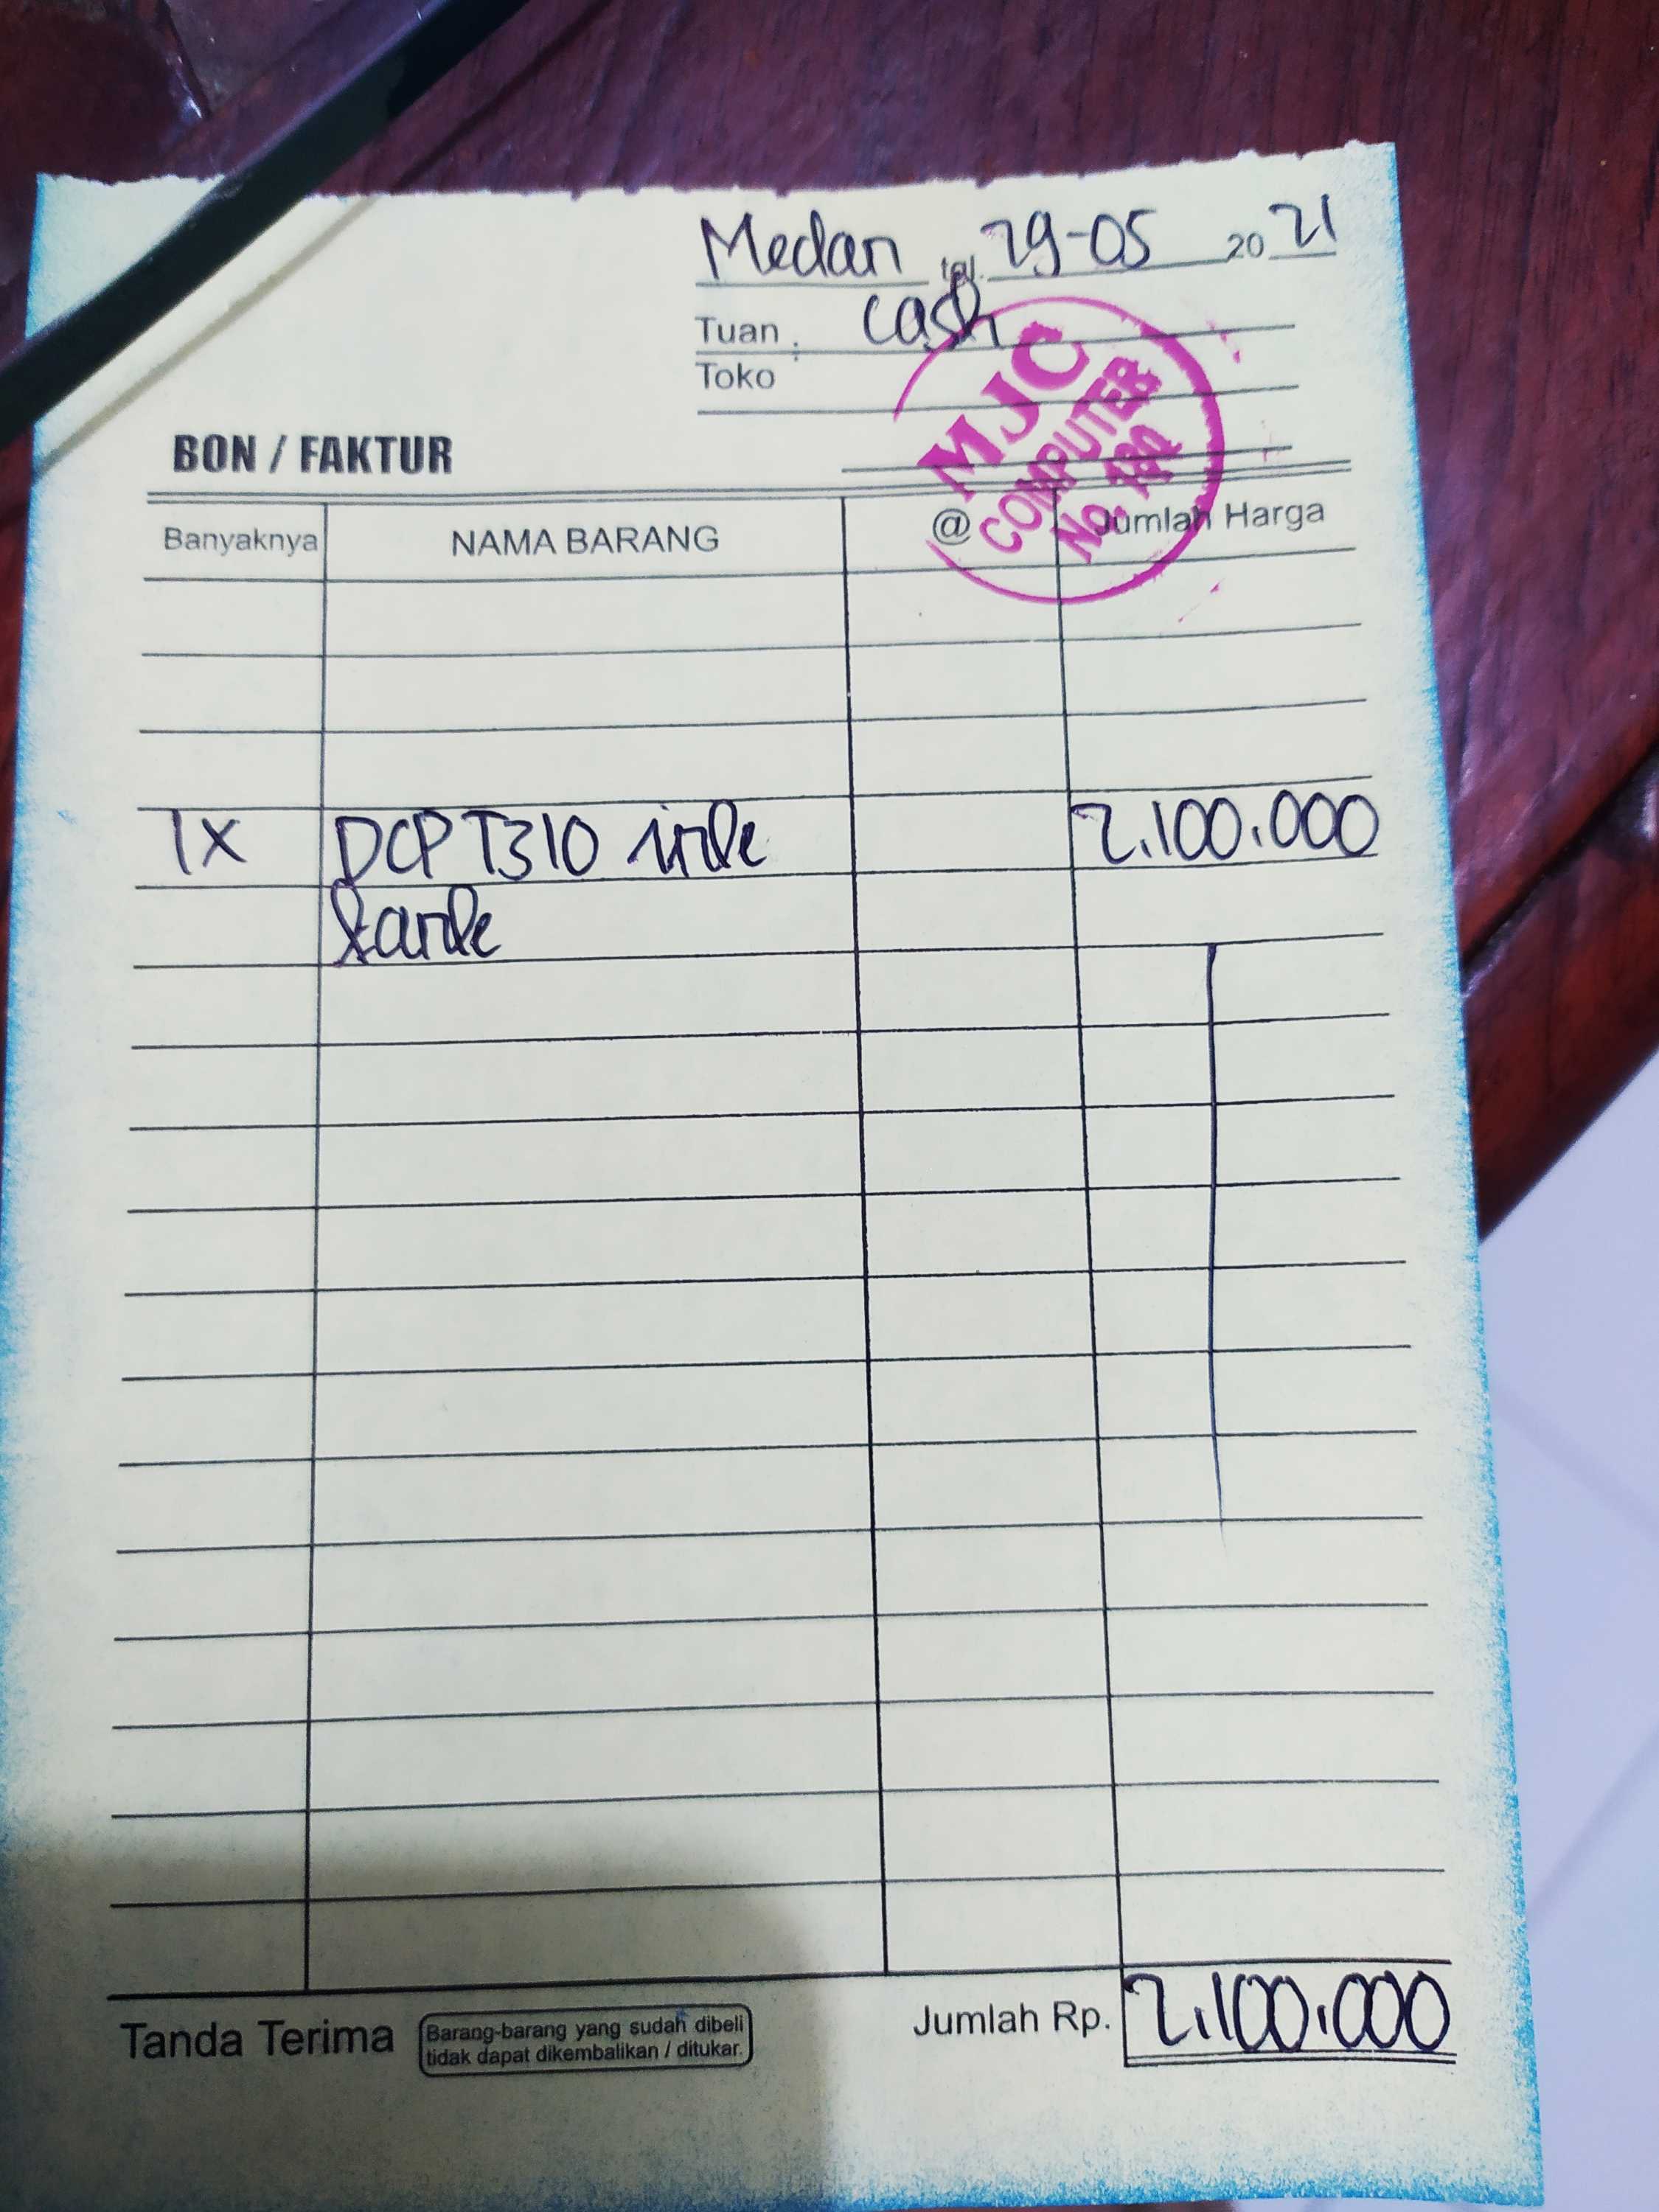 Medan, tgl. 29-05 20 21
Tuan : cash
Toko
MJC
COMPUTER
BON / FAKTUR
Banyaknya NAMA BARANG @ Jumlah Harga
1X DCP T310 ink 2.100.000
tank
Tanda Terima Barang-barang yang sudah dibeli
tidak dapat dikembalikan / ditukar.
Jumlah Rp. 2.100.000